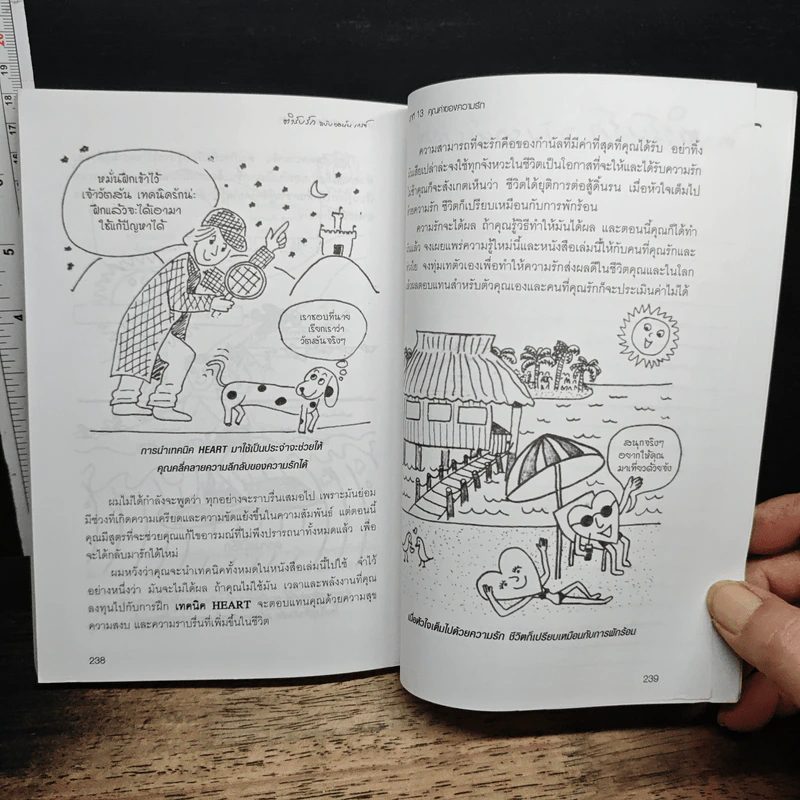 หมั่นฝึกเข้าไว้
เจ้าวัตสัน เทคนิครักน่ะ
ฝึกแล้วจะได้เอามา
ใช้แก้ปัญหาได้
เราชอบที่นาย
เรียกเราว่า
วัตสันจริงๆ
การนำเทคนิค HEART มาใช้เป็นประจำจะช่วยให้
คุณคลี่คลายความลึกลับของความรักได้
ผมไม่ได้กำลังจะพูดว่า ทุกอย่างจะราบรื่นเสมอไป เพราะมันย่อม
มีช่วงที่เกิดความเครียดและความขัดแย้งขึ้นในความสัมพันธ์ แต่ตอนนี้
คุณมีสูตรที่จะช่วยคุณแก้ไขอารมณ์ที่ไม่พึงปรารถนาทั้งหมดแล้ว เพื่อ
จะได้กลับมารักได้ใหม่
ผมหวังว่าคุณจะนำเทคนิคทั้งหมดในหนังสือเล่มนี้ไปใช้ จำไว้
อย่างหนึ่งว่า มันจะไม่ได้ผล ถ้าคุณไม่ใช้มัน เวลาและพลังงานที่คุณ
ลงทุนไปกับการฝึก เทคนิค HEART จะตอบแทนคุณด้วยความสุข
ความสงบ และความราบรื่นที่เพิ่มขึ้นในชีวิต
238
13 คุณค่าของความรัก
ความสามารถที่จะรักคือของกำนัลที่มีค่าที่สุดที่คุณได้รับ อย่าทิ้ง
เสียเปล่าล่ะจงใช้ทุกจังหวะในชีวิตเป็นโอกาสที่จะให้และได้รับความรัก
คุณก็จะสังเกตเห็นว่า ชีวิตได้ยุติการต่อสู้ดิ้นรน เมื่อหัวใจเต็มไป
ความรัก ชีวิตก็เปรียบเหมือนกับการพักร้อน
ความรักจะได้ผล ถ้าคุณรู้วิธีทำให้มันได้ผล และตอนนี้คุณก็ได้ทำ
แล้ว จงเผยแพร่ความรู้ใหม่นี้และหนังสือเล่มนี้ให้กับคนที่คุณรักและ
จงทุ่มเทตัวเองเพื่อทำให้ความรักส่งผลดีในชีวิตคุณและในโลก
ผลตอบแทนสำหรับตัวคุณเองและคนที่คุณรักก็จะประเมินค่าไม่ได้
สนุกจริงๆ
อยากให้คุณ
มาเที่ยวด้วยจัง
เมื่อหัวใจเต็มไปด้วยความรัก ชีวิตก็เปรียบเหมือนกับการพักร้อน
239